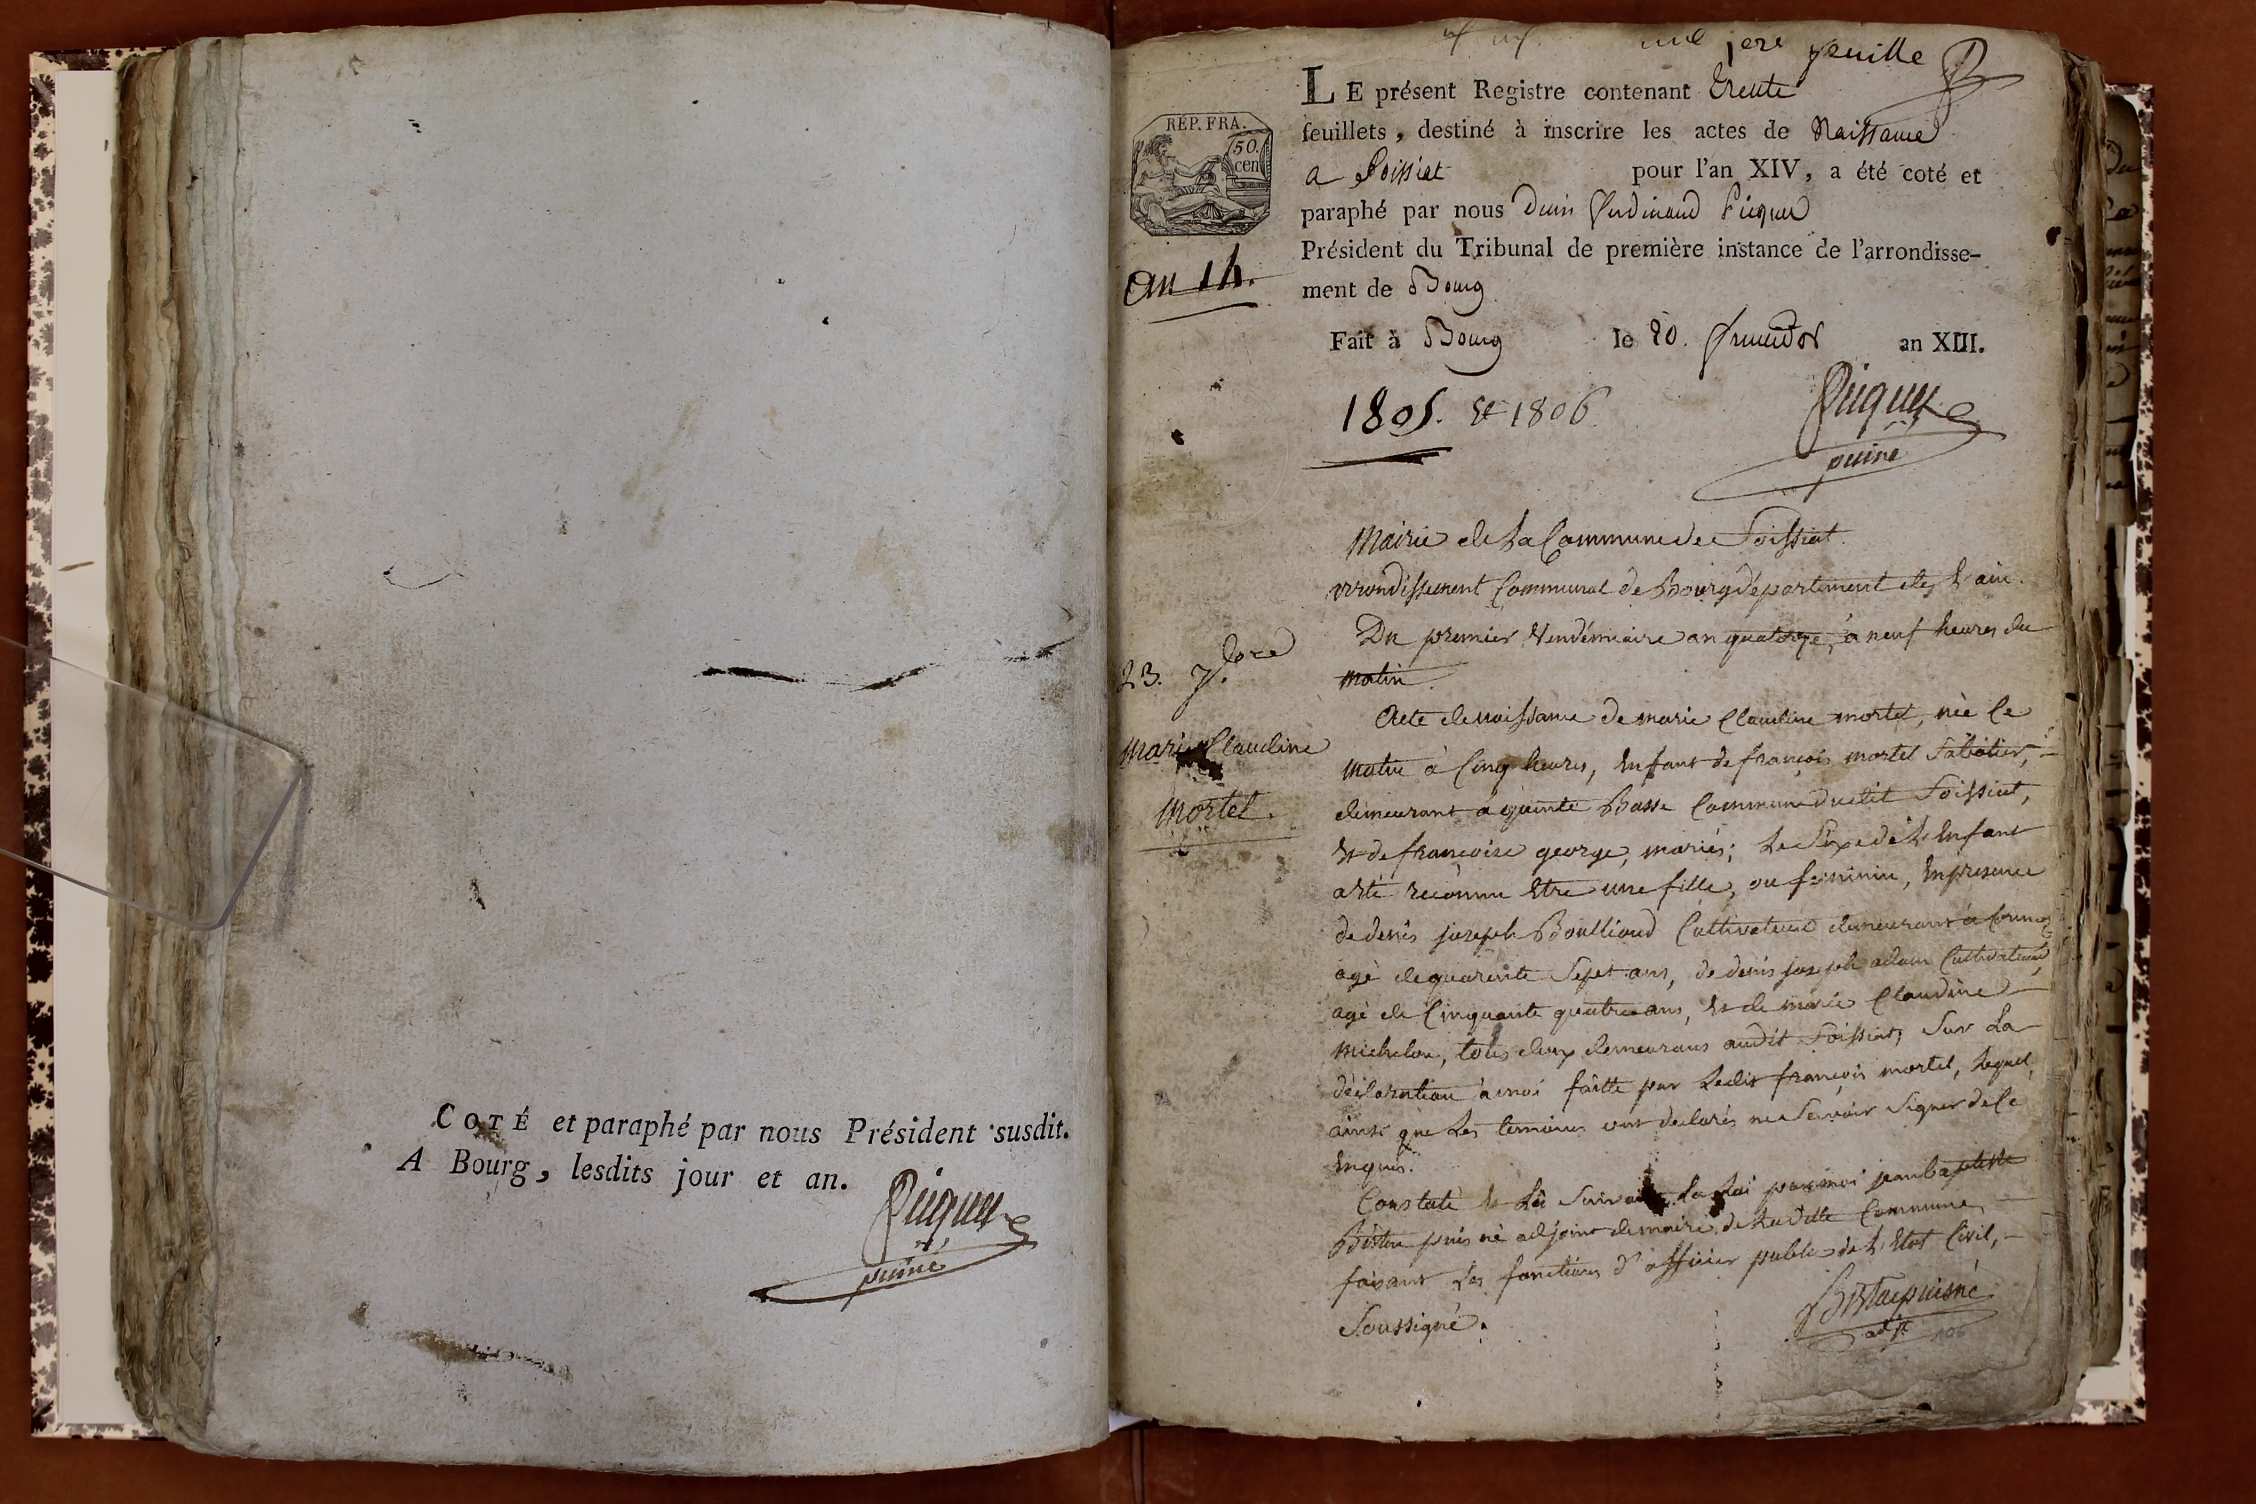 COTÉ et paraphé par nous Président susdit.
A Bourg, lesdits jour et an.
Picquet
puiné
1ere feuille
LE présent Registre contenant trente
feuillets, destiné à inscrire les actes de Naissance
a Foissiat pour l'an XIV, a été coté et
paraphé par nous Denis Ferdinand Picquet
Président du Tribunal de première instance de l'arrondisse-
ment de Bourg
Fait à Bourg le 20. fructidor an XIII.
REP. FRA.
50.
cen
an 14.
1805. et 1806
Picquet
puiné
Mairie de la Commune de Foissiat.
arrondissement Communal de Bourg département de l'ain.
Du premier Vendémiaire an quatorze, à neuf heures du
matin.
23. 7.bre
Marie Claudine
Mortel.
Acte de naissance de marie Claudine mortel, née Ce
matin à Cinq heures, Enfant de françois mortel Sabotier,
demeurant à Basse Commune dudit Foissiat,
Et de francoise george, mariés; Le Sexe de L'Enfant
a été reconnu Etre une fille, ou feminin, En presence
de denis joseph Boulliaud Cultivateur demeurant à
agé de quarante Sept ans, de denis joseph adam Cultivateur
agé de Cinquante quatre ans, Et de marie Claudine
michelon, tous deux demeurans audit Foissiat, Sur La
déclaration à moi faitte par Ledit françois mortel, Lequel,
ainsi que Les temoins ont declarés ne Scavoir Signer de Ce
Enquis.
Constaté Suivant La Loi par moi jean baptiste
puis né adjoint de maire de La ditte Commune,
faisant Les fonctions d'officier public de L'Etat Civil,
Soussigné.
puisné
adjt
106